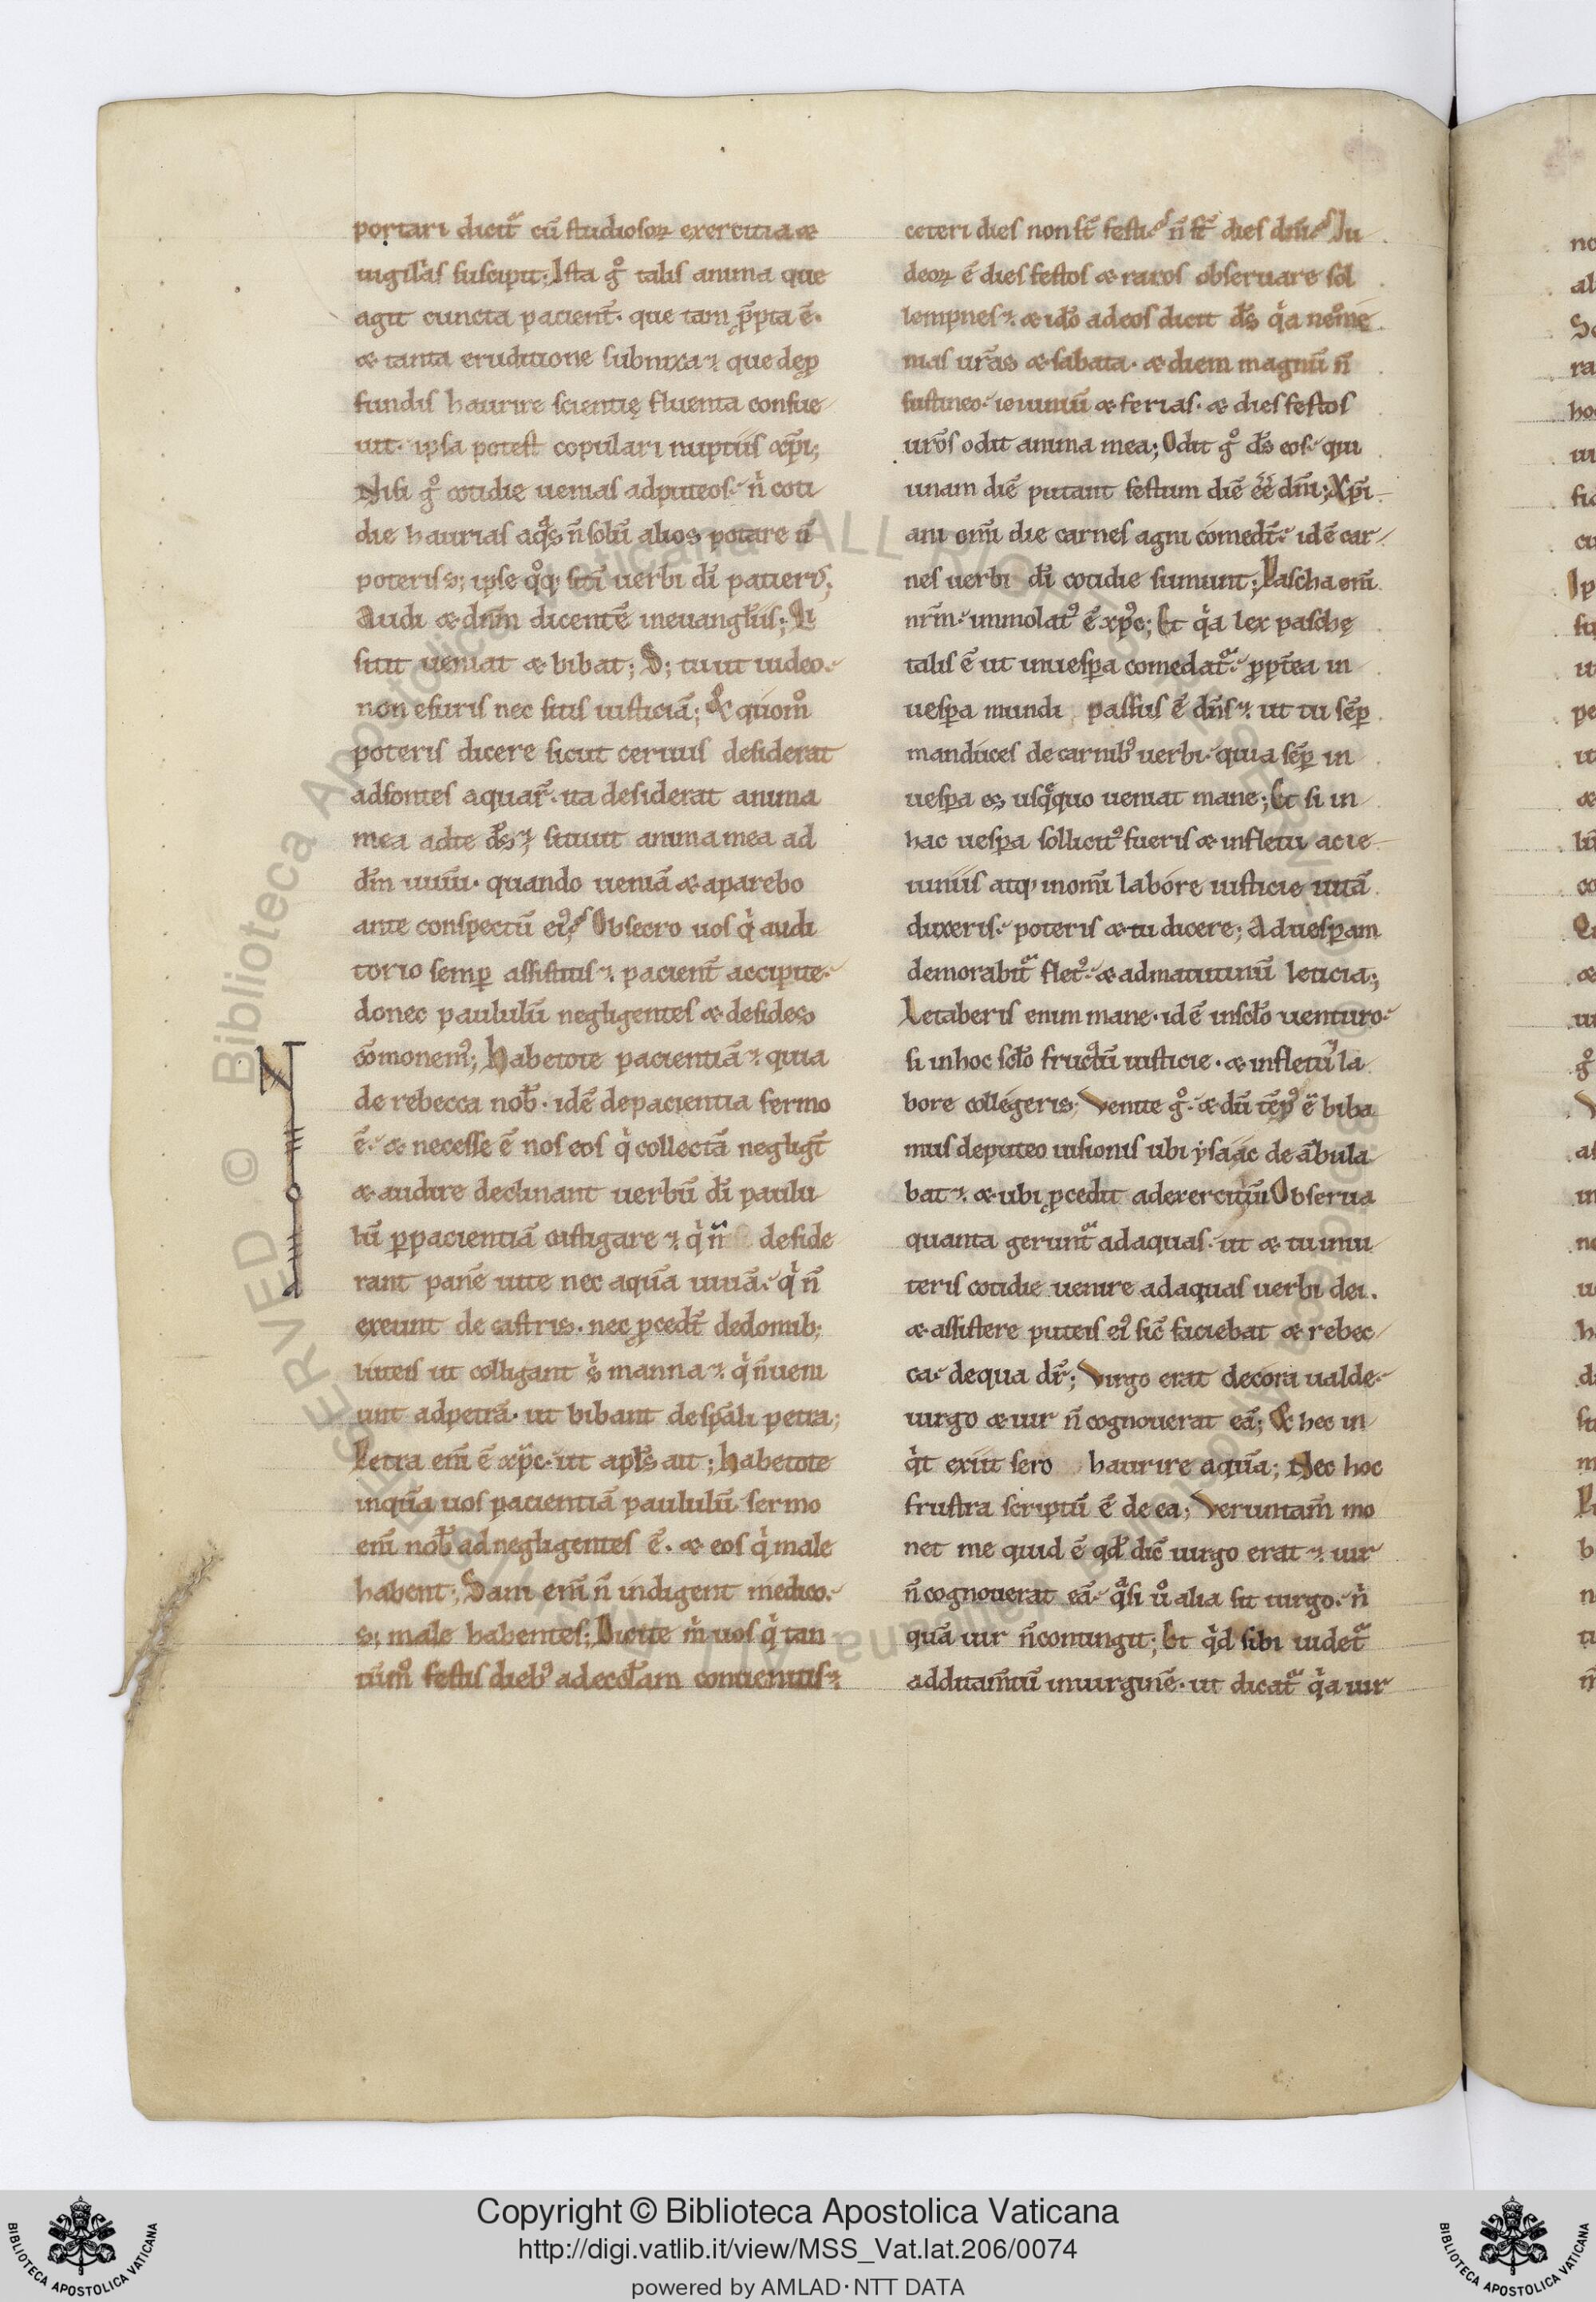 portari dicit᷑ cū studiosoꝝ exercitia æ
uigilias suscipit; Ista gͦ talis anima que
agit cuncta pacient̄. que tam p̄pta ē.
æ tanta eruditione subnixa. que de ꝓ
fundis haurire scientię fluenta consue
uit. ipsa potest copulari nuptiis xp̄i;
Nisi gͦ cotidie uenias ad puteos. n̍ coti
die haurias aqͣs n̄ solū alios potare n̄
poteris s; ipse qͦq; sitī uerbi dī patieris;
Audi æ dn̄m dicentē in euangl̄iis; Qi
sitit ueniat æ bibat; S; tu ut uideo.
non esuris nec sitis iusticiā; & quomͦ
poteris dicere sicut ceruus desiderat
ad fontes aquar̄. ita desiderat anima
mea ad te ds̄. sitiuit anima mea ad
dm̄ uiuū. quando ueniā æ aparebo
ante conspectū eiꝰ; Obsecro uos q̍ audi
torio semꝑ assistitis. pacient̄ accipite.
donec paululū negligentes æ desides
cōmonemꝰ; Habetote pacientiā. quia
de rebecca nob̄. idē de pacientia sermo
ē. æ necesse ē nos eos q̍ collectā negligt̄
æ audire declinant uerbū dī paulu
lū ꝑ pacientiā castigare. q̍ n̄ deside
rant panē uite nec aquā uiuā. q̍ n̄
exeunt de castris. nec ꝓcedt̄ de domib;
luteis ut colligant s̍ manna. q̍ n̄ ueni
unt ad petrā. ut bibant de sp̄ali petra;
Petra enī ē xp̄c. ut apl̄s ait; Habetote
inquā uos pacientiā paululū. sermo
enī nob̄ ad negligentes ē. æ eos q̍ male
habent; Sani enī n̄ indigent medico.
s; male habentes; Dicite m̍ uos q̍ tan
tūmͦ festis diebꝰ ad eccl̄iam conuenitis.
ceteri dies non st̄ festi. n̄ st̄ dies dn̄i. Iu
deoꝝ ē dies festos æ raros obseruare sol
lempnes. æ idō ad eos dicit ds̄ q̍a neome
nias ur̄as æ sabata. æ diem magnū n̄
sustineo. ieiuniū æ ferias. æ dies festos
ur̄os odit anima mea; Odit gͦ ds̄ eos. qui
unam diē putant festum diē ēē dn̄i; Xp̄i
ani omī die carnes agni comedt̄. id ē car
nes uerbi dī cotidie sumunt; Pascha enī
nr̄m. immolatꝰ ē xp̄c; Et q̍a lex paschę
talis ē ut in uesꝑa comedat᷑. ꝓpt̄ea in
uesꝑa mundi passus ē dn̄s. ut tu sēꝑ
manduces de carnibꝰ uerbi. quia sēꝑ in
uesꝑa es usqͣquo ueniat mane; Et si in
hac uesꝑa sollicitꝰ fueris æ in fletu ac ie
iuniis atq; in omī labore iusticie uitā
duxeris. poteris æ tu dicere; Ad uesꝑam
demorabit᷑ fletꝰ. æ ad matutinū leticia;
Letaberis enim mane. id ē in sc̄lo uenturo.
si in hoc sc̄lo fructū iusticie. æ in fletu la
bore collegeris; Venite gͦ. æ dū tēpꝰ ē biba
mus de puteo uisionis ubi ẏsaac de ābula
bat. æ ubi ꝓcedit ad exercitiū; Obserua
quanta gerunt᷑ ad aquas. ut æ tu inui
teris cotidie uenire ad aquas uerbi dei.
æ assistere puteis eiꝰ sic̄ faciebat æ rebec
ca. de qua dr̄; Virgo erat decora ualde.
uirgo æ uir n̄ cognouerat eā; & hec in
q̍t exiit sero haurire aquā; Nec hoc
frustra scriptū ē de ea; Veruntam̄ mo
uet me quid ē qd̄ dic̄ uirgo erat. uir
n̄ cognouerat eā. qͣsi uͦ alia sit uirgo. n̍
quā uir n̄ contingit; Et q̍d sibi uidet᷑
additam̄tū in uirginē. ut dicat᷑ q̍a uir
Copyright © Biblioteca Apostolica Vaticana
http://digi.vatlib.it/view/MSS_Vat.lat.206/0074
powered by AMLAD·NTT DATA